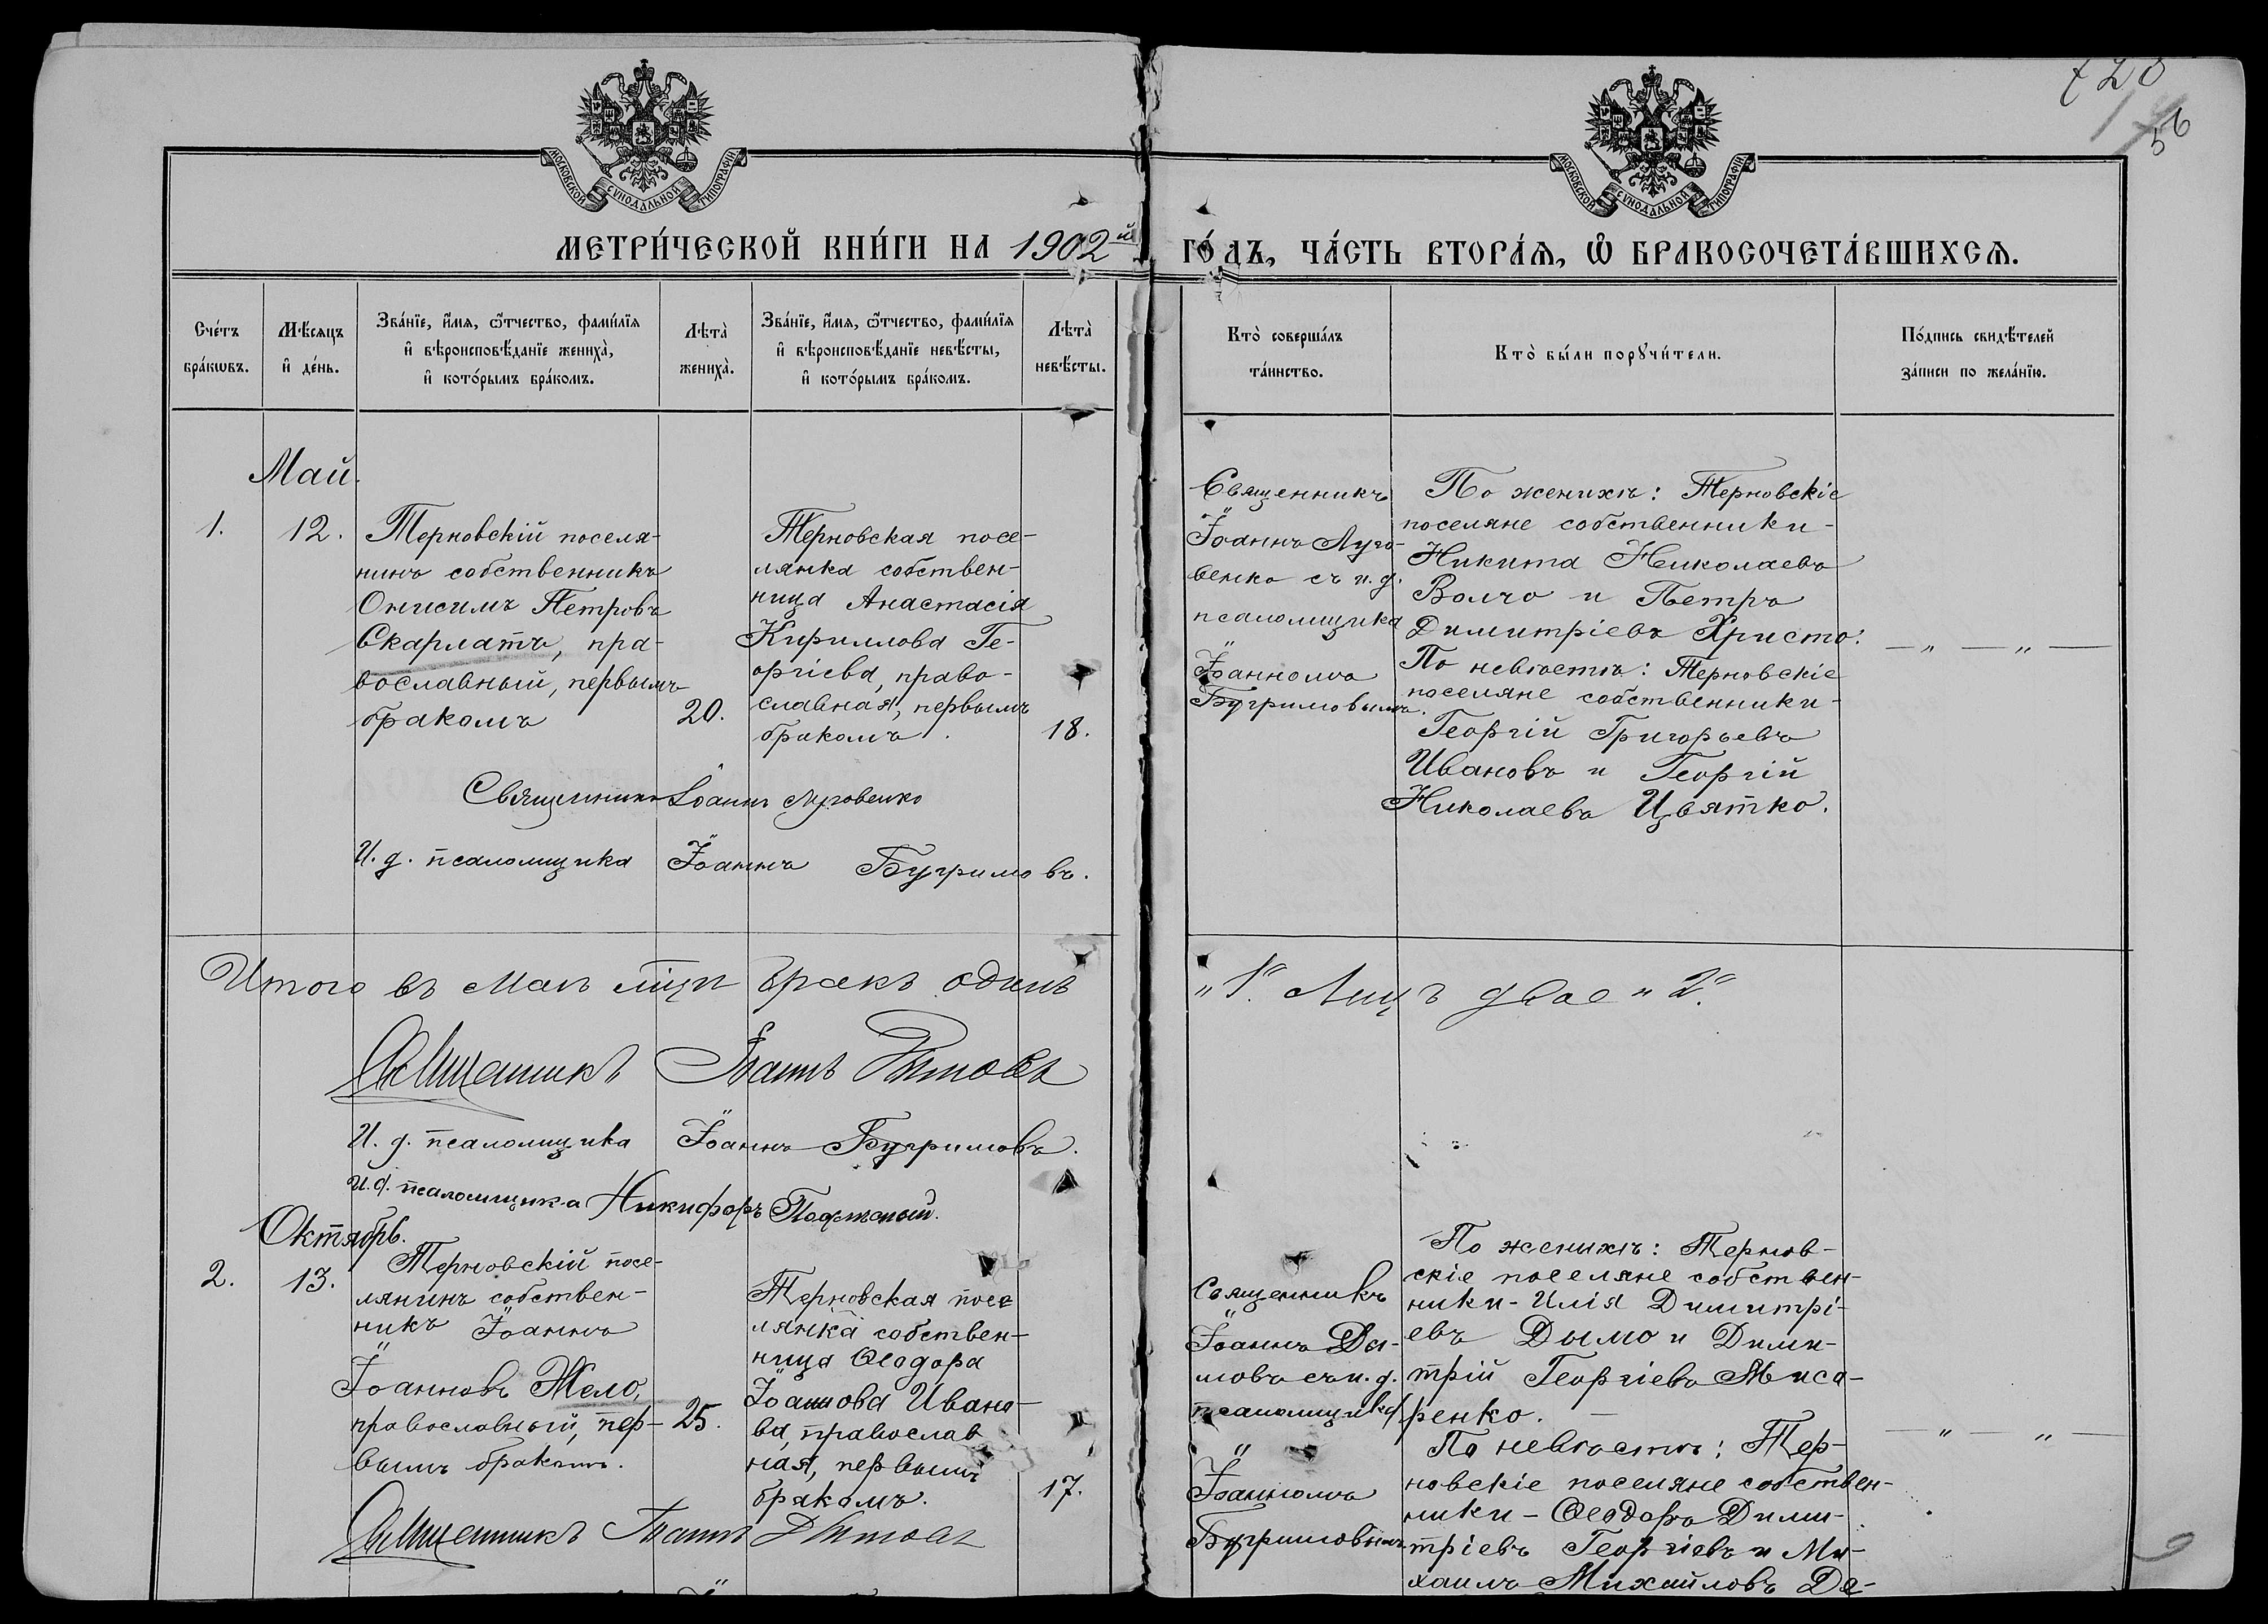 728
56
МОСКОВСКОЙ СУНОДАЛЬНОЙ ТИПОГРАФІИ
МОСКОВСКОЙ СУНОДАЛЬНОЙ ТИПОГРАФІИ
МЕТРИ́ЧЕСКОЙ КНИ́ГИ НА 1902й
ГО́ДЪ, ЧА́СТЬ ВТОРА́Ѧ, Ѽ БРАКОСОЧЕТА́ВШИХСѦ.
Сче́тъ
бра́кѡвъ.
Мѣ́сяцъ
и҆ де́нь.
Зва́нїе, и҆́мя, ѻ҆́тчество, фами́лїя
и҆ вѣроисповѣ́данїе жениха̀,
и҆ кото́рымъ бра́комъ.
Лѣта̀
жениха̀.
Зва́нїе, и҆́мя, ѻ҆́тчество, фами́лїя
и҆ вѣроисповѣ́данїе невѣ́сты,
и҆ кото́рымъ бра́комъ.
Лѣта̀
невѣ́сты.
Кто̀ соверша́лъ
та́инство.
Кто̀ бы́ли порꙋчи́тели.
По́дпись свидѣ́телей
за́писи по жела́нїю.
Май.
1.
12.
Терновскій поселя-
нинъ собственникъ
Онисимъ Петровъ
Скарлатъ, пра-
вославный, первымъ
бракомъ
20.
Терновская посе-
лянка собствен-
ница Анастасія
Кириллова Ге-
оргіева, право-
славная, первымъ
бракомъ.
18.
Священникъ
Іоаннъ Луго-
венко съ и. д.
псаломщика
Іоанномъ
Бугримовымъ.
По женихѣ: Терновскіе
поселяне собственники-
Никита Николаевъ
Волчо и Петръ
Димитріевъ Христо.
По невѣстѣ: Терновскіе
поселяне собственники-
Георгій Григорьевъ
Ивановъ и Георгій
Николаевъ Цвятко.
— „ — „ —
Священникъ Іоаннъ Луговенко
И. д. псаломщика Іоаннъ Бугримовъ.
Итого въ маѣ м̃цѣ бракъ одинъ
„1". Лицъ двое „2."
Священникъ Іоаннъ Дымовъ
И. д. псаломщика Іоаннъ Бугримовъ.
И. д. псаломщика Никифоръ
Октябрь.
2.
13.
Терновскій посе-
лянинъ собствен-
никъ Іоаннъ
Іоанновъ Жело,
православный, пер-
вымъ бракомъ.
25.
Терновская посе
лянка собствен-
ница Ѳеодора
Іоаннова Ивано-
ва, православ
ная, первымъ
бракомъ.
17.
Священникъ
Іоаннъ Ды-
мовъ съ и. д.
псаломщика
Іоанномъ
Бугримовымъ
По женихѣ: Тернов-
скіе поселяне собствен-
ники - Илія Димитрі-
евъ Дымо и Дими-
трій Георгіевъ Миса-
ренко. —
По невѣстѣ: Тер-
новскіе поселяне собствен-
ники - Ѳеодоръ Дими-
тріевъ Георгіевъ и Ми-
хаилъ Михайловъ Де-
— „ — „ —
Священникъ Іоаннъ Дымовъ